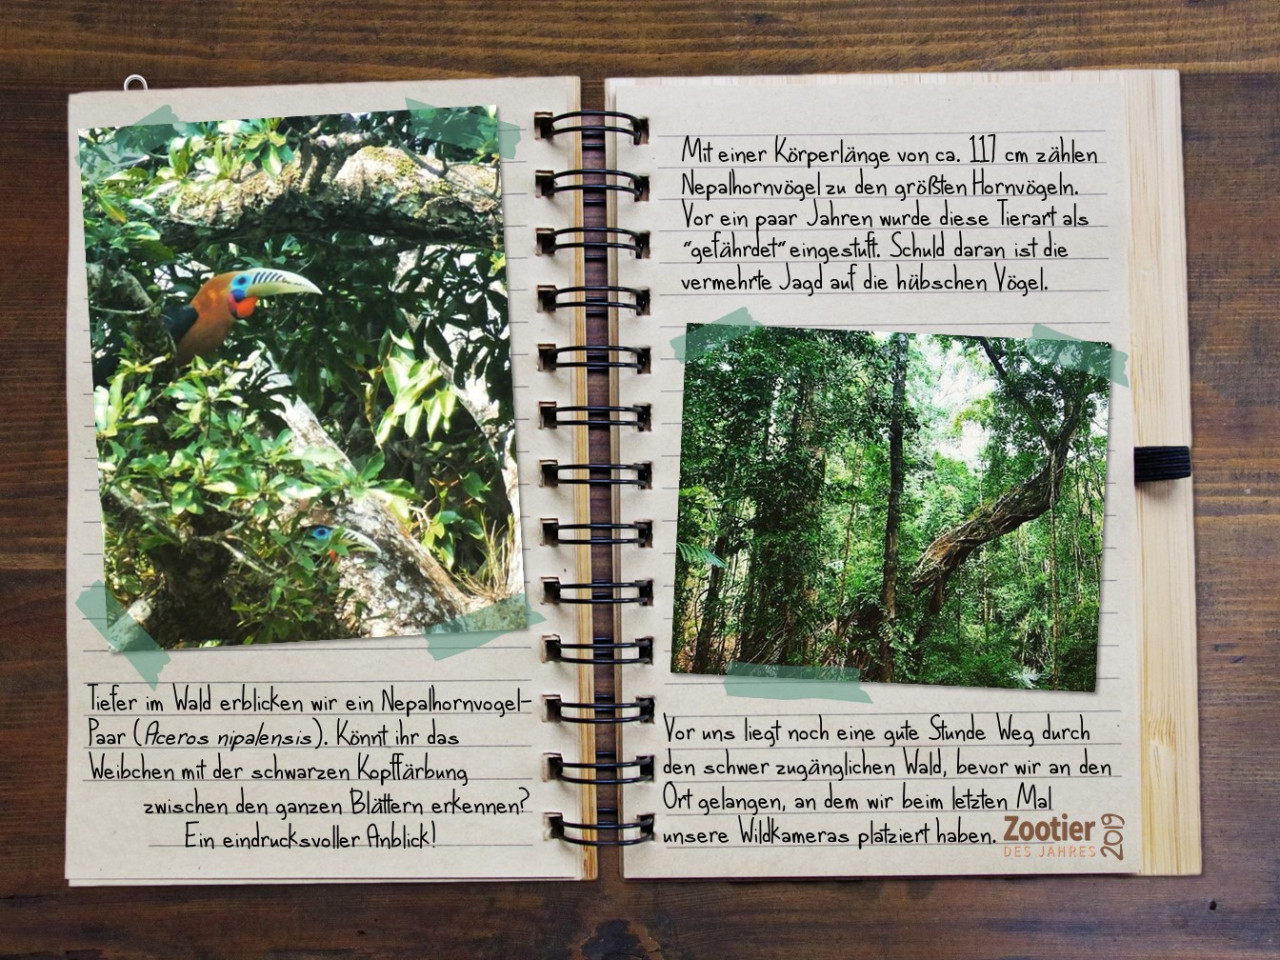 Tiefer im Wald erblicken wir ein Nepalhornvogel-
Paar (Aceros nipalensis). Könnt ihr das
Weibchen mit der schwarzen Kopffärbung
zwischen den ganzen Blättern erkennen?
Ein eindrucksvoller Anblick!
Mit einer Körperlänge von ca. 117 cm zählen
Nepalhornvögel zu den größten Hornvögeln.
Vor ein paar Jahren wurde diese Tierart als
"gefährdet" eingestuft. Schuld daran ist die
vermehrte Jagd auf die hübschen Vögel.
Vor uns liegt noch eine gute Stunde Weg durch
den schwer zugänglichen Wald, bevor wir an den
Ort gelangen, an dem wir beim letzten Mal
unsere Wildkameras platziert haben.
Zootier
DES JAHRES
2019